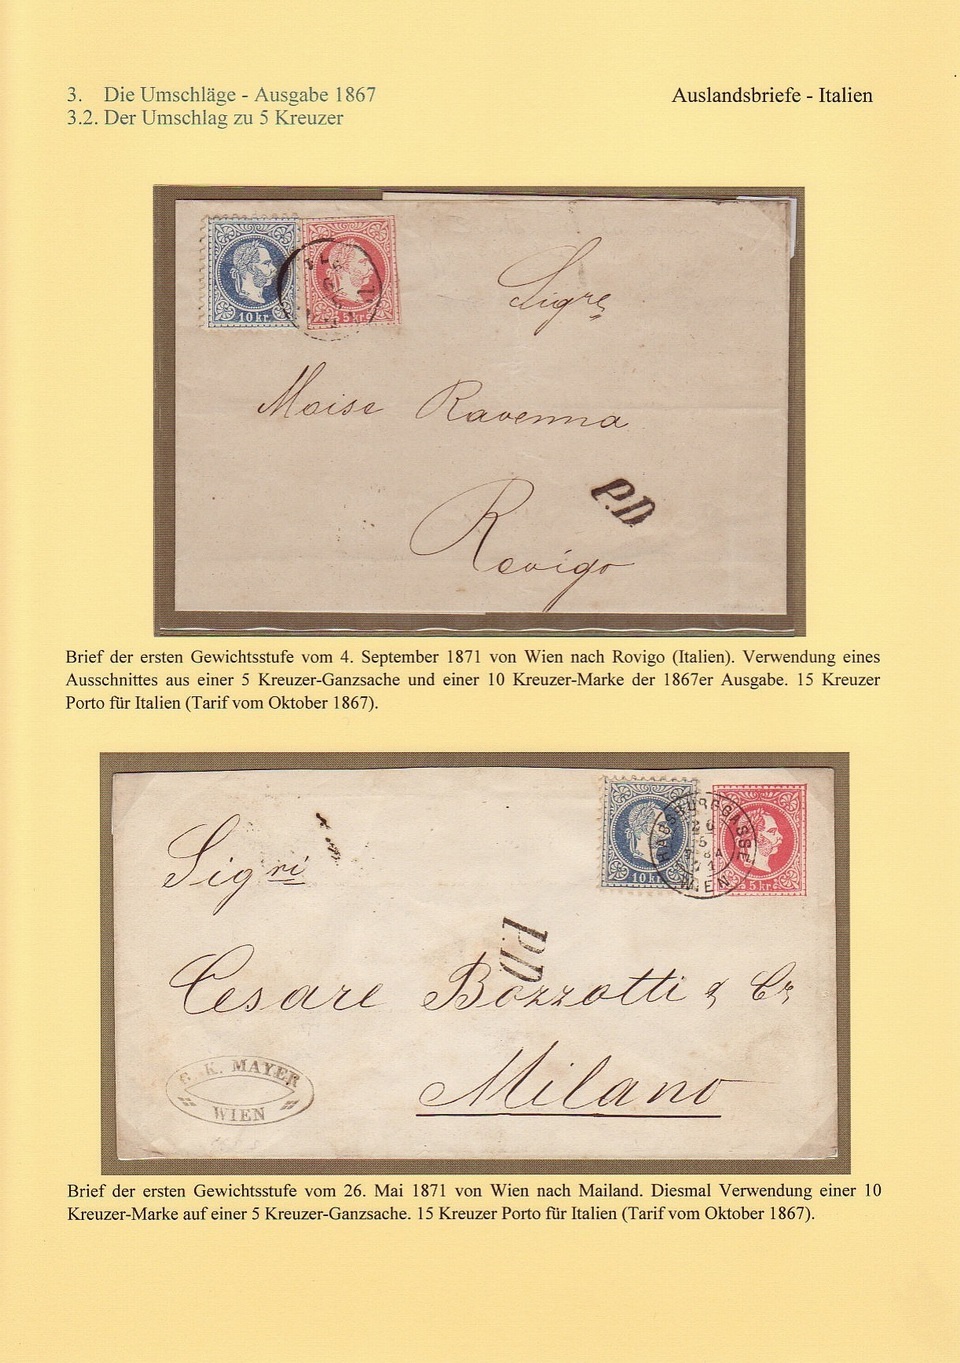 3. Die Umschläge - Ausgabe 1867
Auslandsbriefe - Italien
3.2. Der Umschlag zu 5 Kreuzer
10 kr.
5 kr.
Sigre
Moise Ravenna
P.D.
Rovigo
Brief der ersten Gewichtsstufe vom 4. September 1871 von Wien nach Rovigo (Italien). Verwendung eines
Ausschnittes aus einer 5 Kreuzer-Ganzsache und einer 10 Kreuzer-Marke der 1867er Ausgabe. 15 Kreuzer
Porto für Italien (Tarif vom Oktober 1867).
10 kr.
5 kr.
HABSBURGGASSE
WIEN
Sigri
P.D.
Cesare Bozzotti & Co
Milano
K. MAYER
WIEN
Brief der ersten Gewichtsstufe vom 26. Mai 1871 von Wien nach Mailand. Diesmal Verwendung einer 10
Kreuzer-Marke auf einer 5 Kreuzer-Ganzsache. 15 Kreuzer Porto für Italien (Tarif vom Oktober 1867).